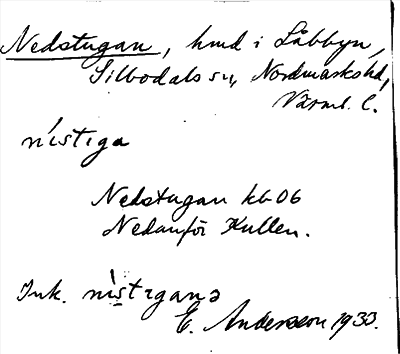 Nedstugan, hmd i Låbbyn,
Silbodals sn, Nordmarks hd,
Värml. l.
ni̍stiga
Nedstugan kb 06
Nedanför Kullen.
Ink. ni̍stigana
E. Andersson 1933.